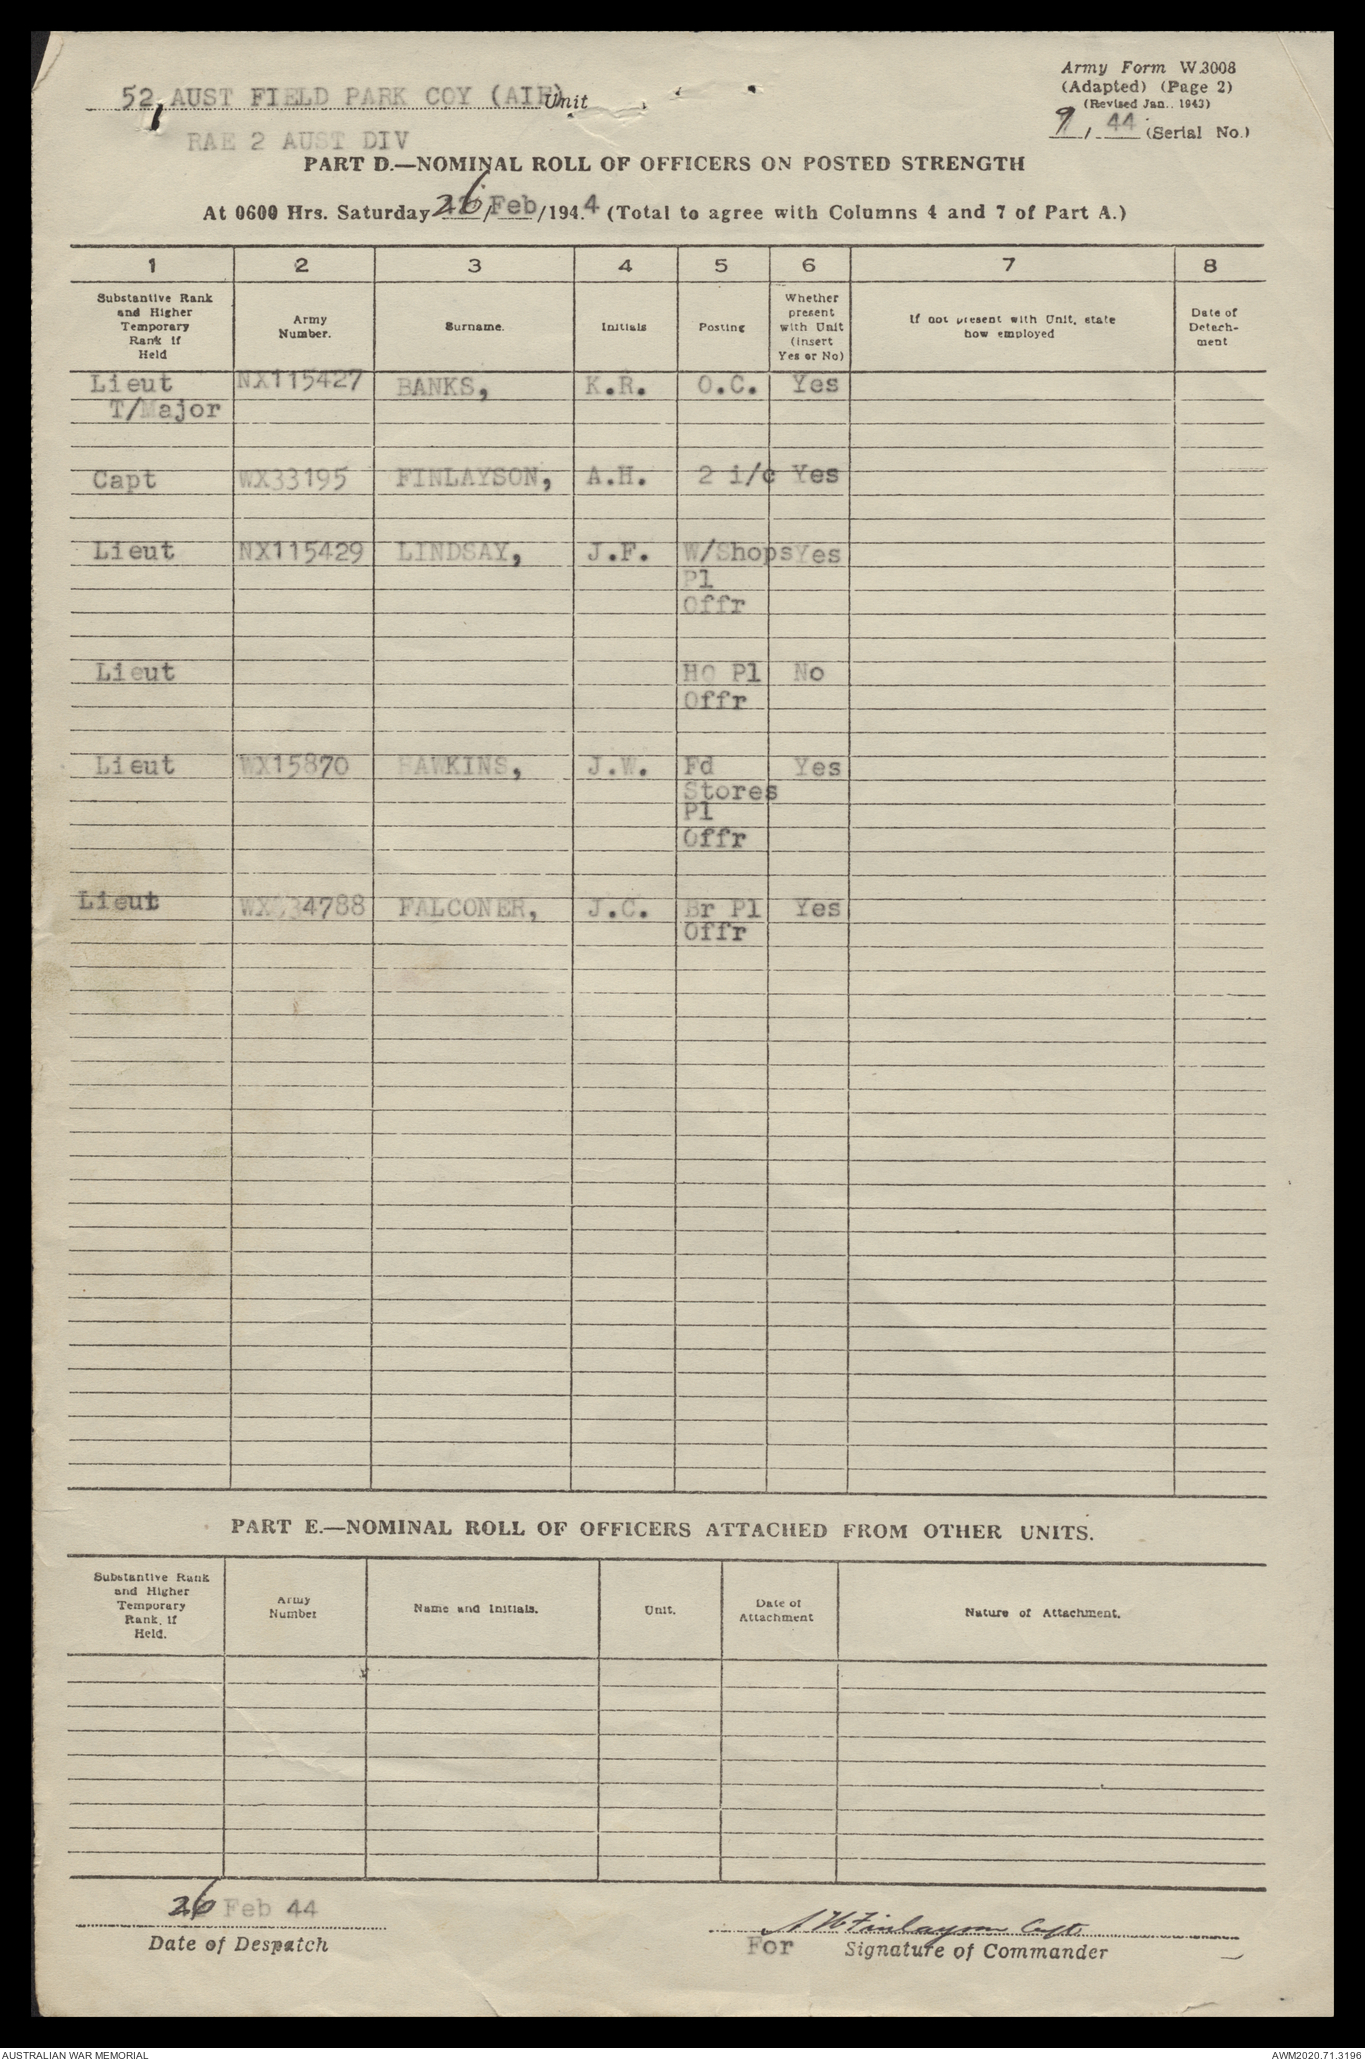 52 AUST FIELD PARK COY (AIF) Unit
RAE 2 AUST DIV
Army Form W.3008
(Adapted) (Page 2)
(Revised Jan., 1943)
9 / 44 (Serial No.)
PART D.—NOMINAL ROLL OF OFFICERS ON POSTED STRENGTH
At 0600 Hrs. Saturday 26/Feb/1944 (Total to agree with Columns 4 and 7 of Part A.)
1 2 3 4 5 6 7 8
Substantive Rank and Higher Temporary Rank if Held
Army Number.
Surname.
Initials
Posting
Whether present with Unit (insert Yes or No)
If not present with Unit, state how employed
Date of Detach-ment
Lieut NX115427 BANKS, K.R. O.C. Yes
T/Major
Capt WX33195 FINLAYSON, A.H. 2 i/c Yes
Lieut NX115429 LINDSAY, J.F. W/Shops Yes
Pl
Offr
Lieut HQ Pl No
Offr
Lieut WX15870 HAWKINS, J.W. Fd Yes
Stores
Pl
Offr
Lieut FALCONER, J.C. Br Pl Yes
Offr
PART E.—NOMINAL ROLL OF OFFICERS ATTACHED FROM OTHER UNITS.
Substantive Rank and Higher Temporary Rank, if Held.
Army Number
Name and Initials.
Unit.
Date of Attachment
Nature of Attachment.
26 Feb 44
Date of Despatch
A H Finlayson Capt.
For Signature of Commander
AUSTRALIAN WAR MEMORIAL
AWM2020.71.3196